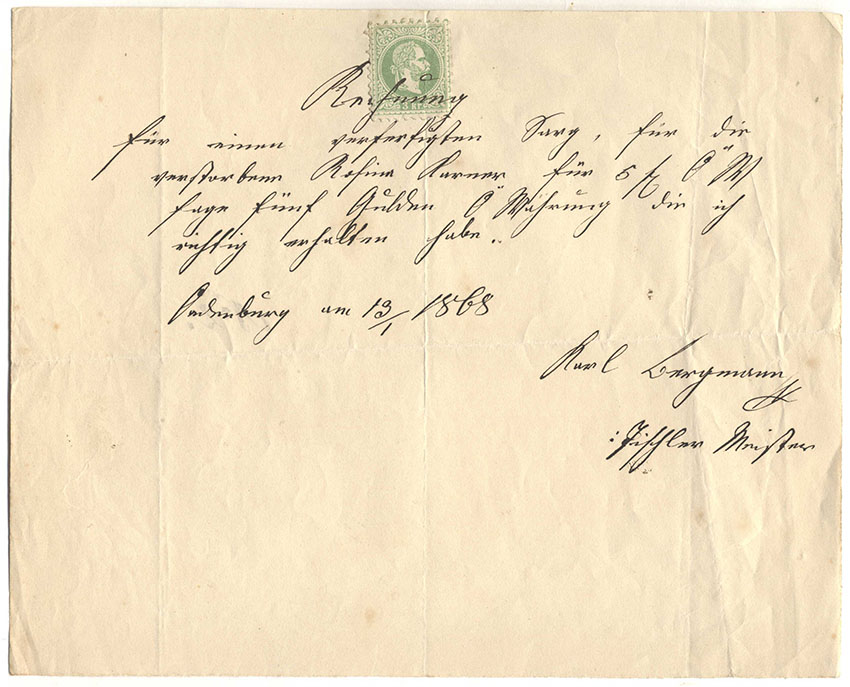 3 KR
Rechnung
für einen verfertigten Sarg, für die
verstorbene Rosina Karner für 5 f Ö W
sage fünf Gulden Ö Währung die ich
richtig erhalten habe.
Oedenburg am 13/1 1868
Karl Bergmann
:Tischler Meister